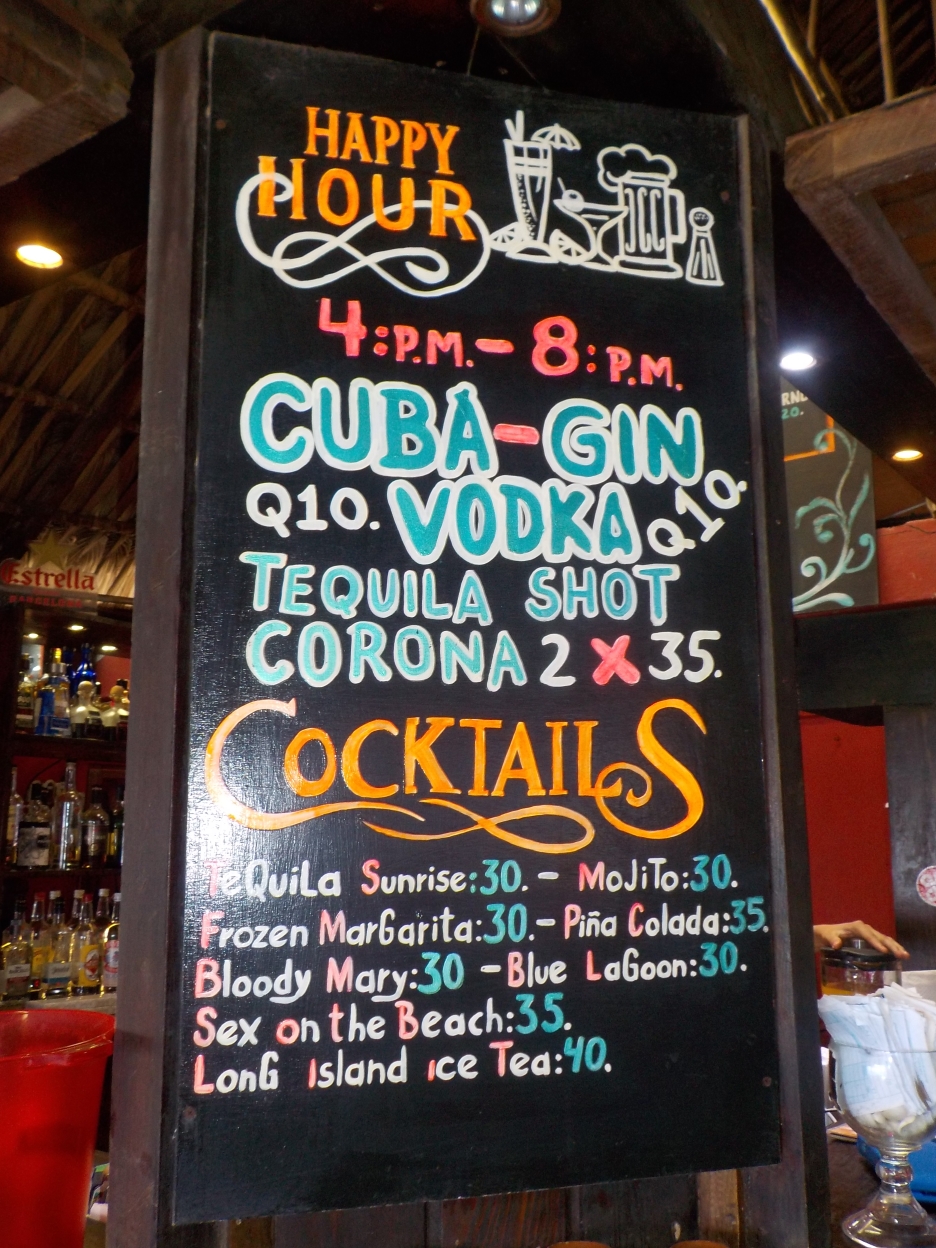 HAPPY
HOUR
4:P.M.-8:P.M.
CUBA-GIN
Q10. VODKA Q10.
TEQUILA SHOT
CORONA 2 X 35.
COCKTAILS
TeQuiLa Sunrise:30. - MoJiTo:30.
Frozen MarGarita:30.- Piña Colada:35.
Bloody Mary:30 -Blue LaGoon:30.
Sex on the Beach:35.
LonG Island Ice Tea:40.
Estrella
20.